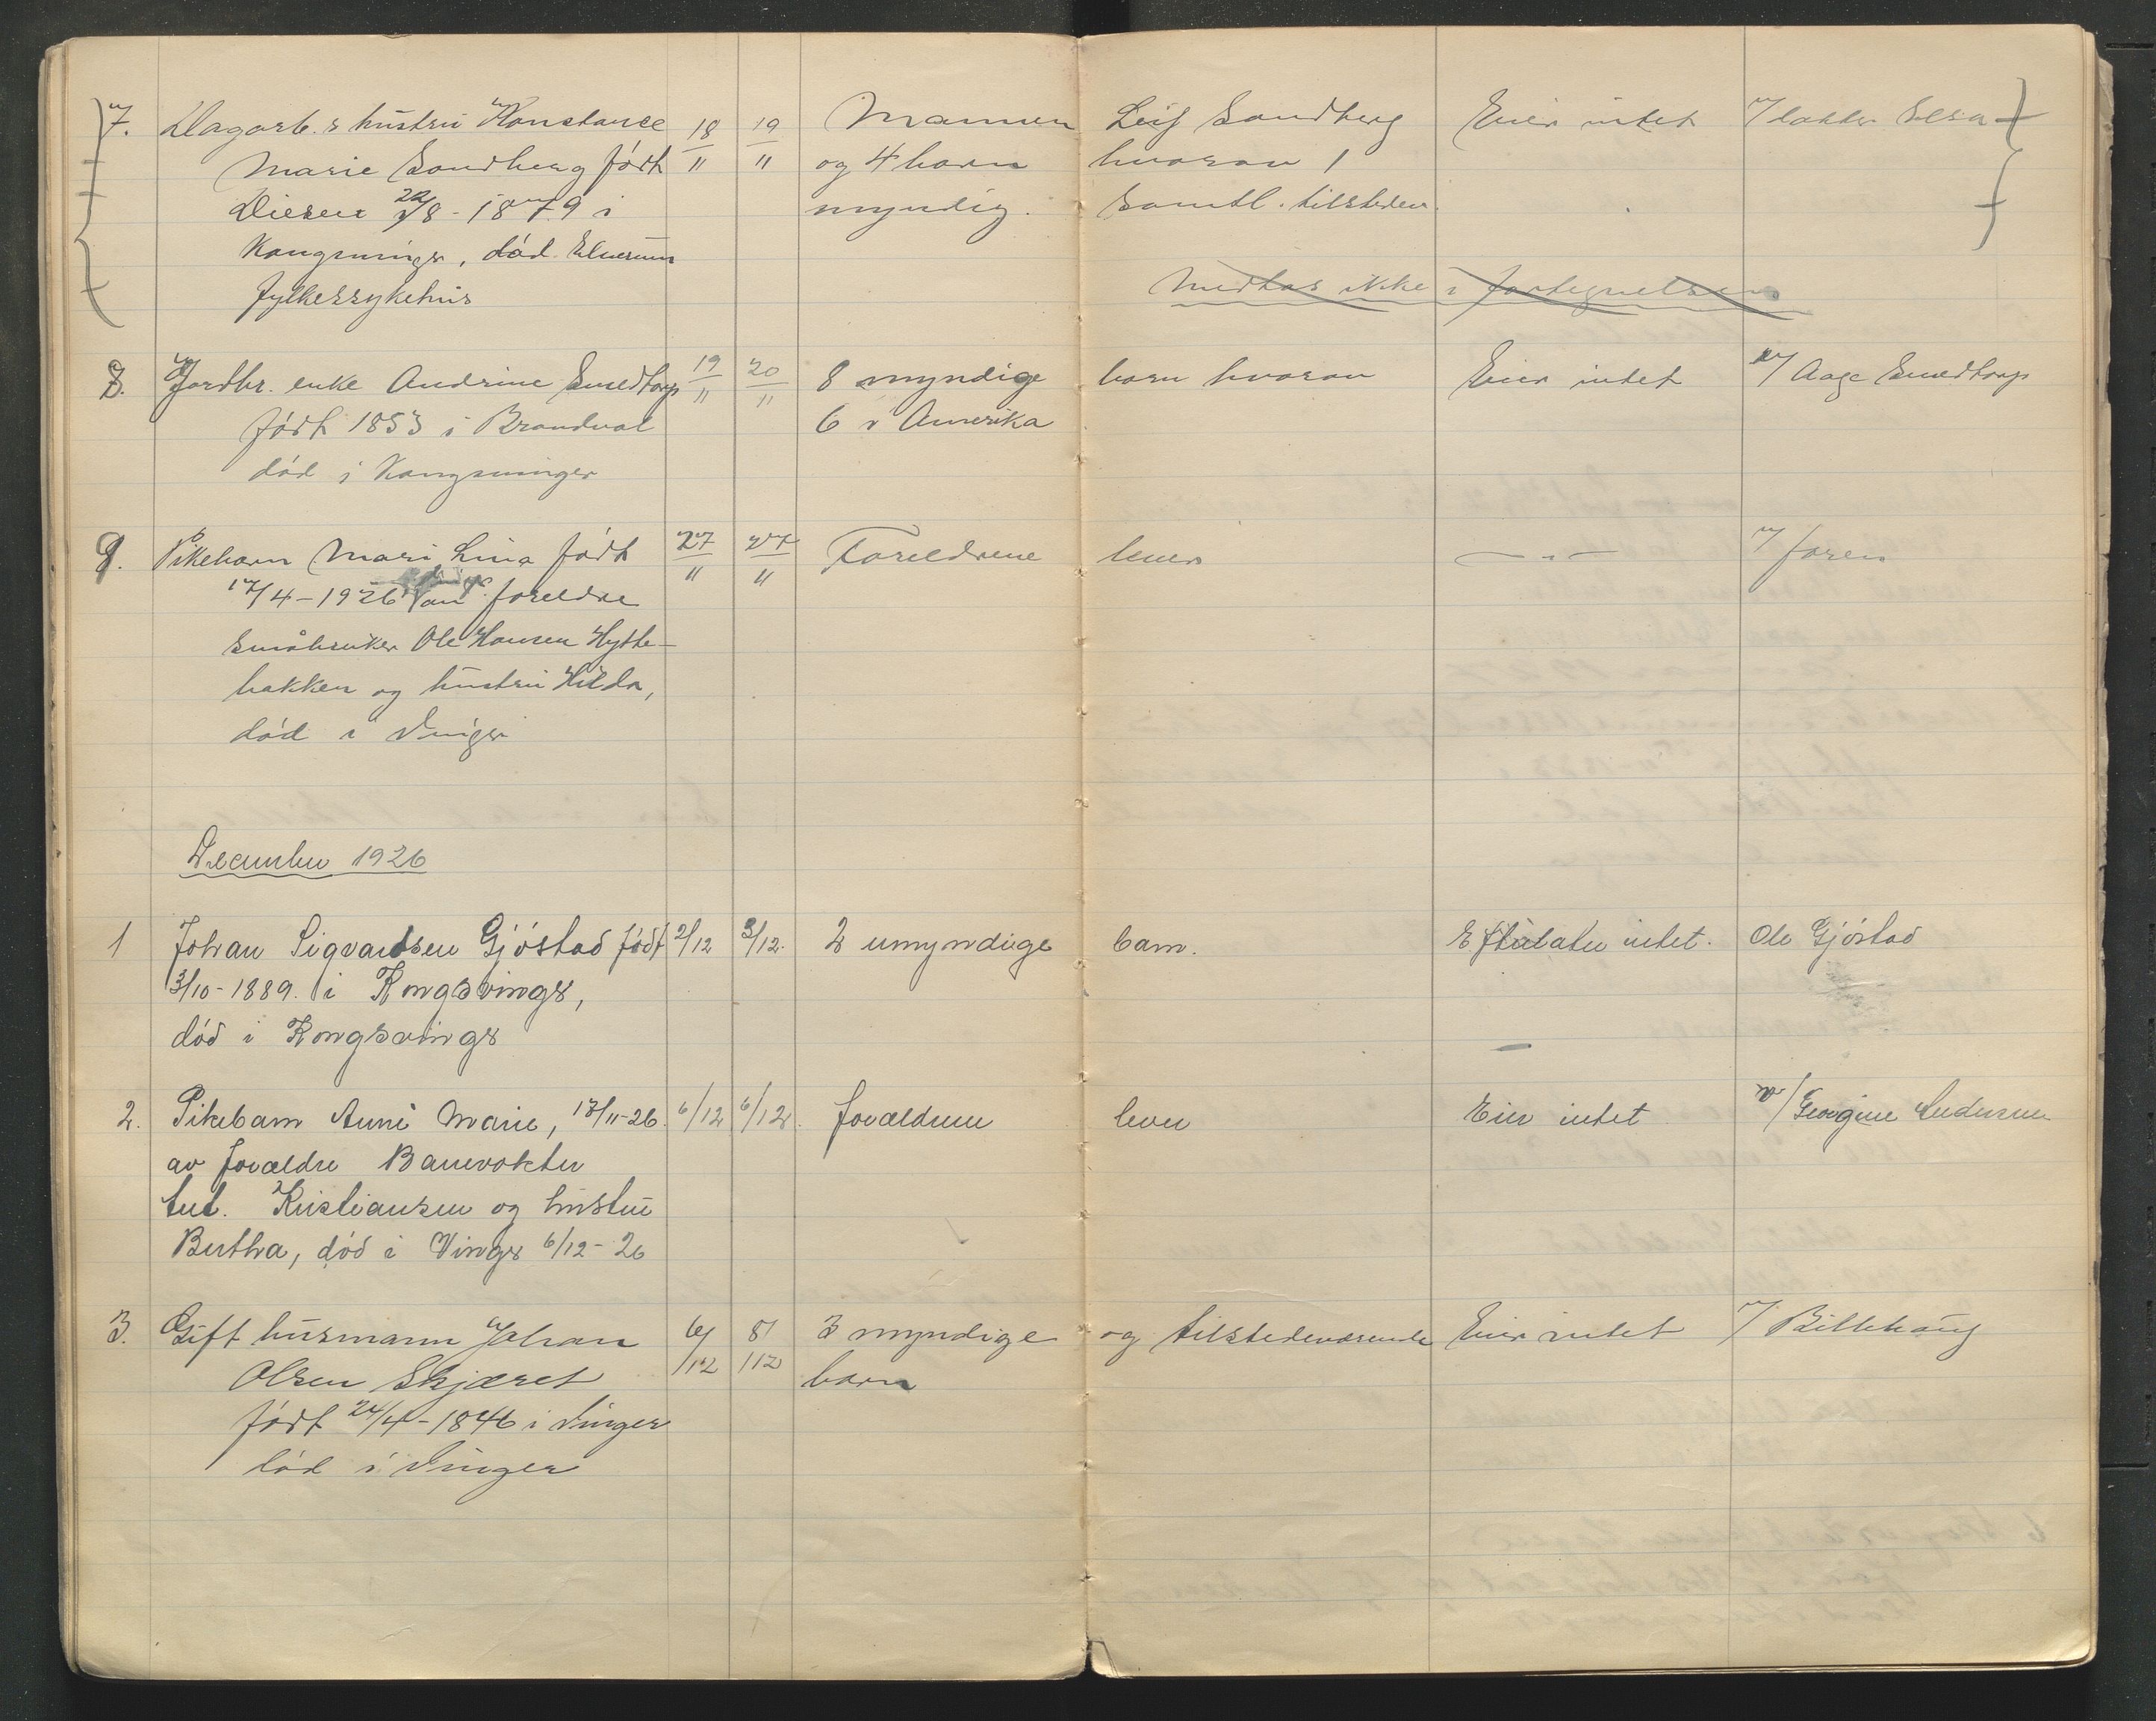 7. Dagarb.s hustru Konstance 18/11 19/11 Mannen Leif Sandberg Eier intet v/ datter Elsa
Marie Sandberg født og 4 barn hvorav 1
Diesen 22/8 - 1879 i myndig. Samtl. tilstede.
Kongsvinger, død Elverum
fylkessykehus
Medtas ikke i fortegnelsen
8. Jordbr. enke Andrine Smedtorp 19/11 20/11 8 myndige barn hvorav Eier intet v/ Aage Smedtorp
født 1853 i Brandval 6 i Amerika
død i Kongsvinger
9. Pikebarn Mari Lina født 27/11 27/11 Foreldrene lever — " — v/ faren
17/4 - 1926 av foreldre
småbruker Ole Hansen Hytte-
bakken og hustru Hilda,
død i Vinger
December 1926
1 Johan Sigvardsen Gjøstad født 2/12 3/12. 2 umyndige barn. Efterlater intet. Ole Gjøstad
3/10 - 1889. i Kongsvinger,
død i Kongsvinger
2. Pikebarn Anne Marie, 13/11-26. 6/12 6/12. forældrene lever Eier intet v/ Georgine Andersen
av forældre Banevokter
Kristiansen og hustru
Bertha, død i Vinger 6/12 - 26
3. Gift husmann Johan 6/12 8/12 3 myndige og tilstedeværende Eier intet v/ Billehaug
Olsen Skjæret barn
født 24/4 - 1846 i Vinger
død i Vinger